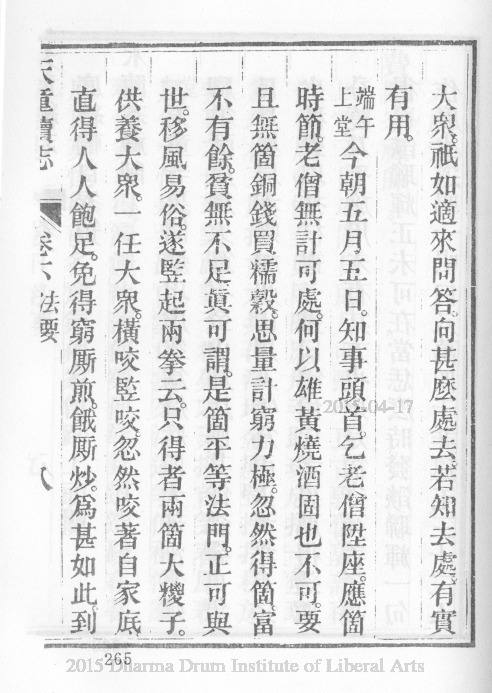 大衆。祇如適來問答。向甚麽處去。若知去處。有實
有用。
端午上堂 今朝五月五日。知事頭首。乞老僧陞座。應箇
時節。老僧無計可處。何以雄黃燒酒固也不可。要
且無箇銅錢買糯穀。思量計窮力極。忽然得箇。富
不有餘。貧無不足。眞可謂。是箇平等法門。正可與
世。移風易俗。遂竪起兩拳云。只得者兩箇大糉子。
供養大衆。一任大衆。橫咬竪咬。忽然咬著自家底。
直得人人飽足。免得窮厮煎。餓厮炒。爲甚如此。到
天童寺續志 卷下 法要 八
2015-04-17
265
2015 Dharma Drum Institute of Liberal Arts